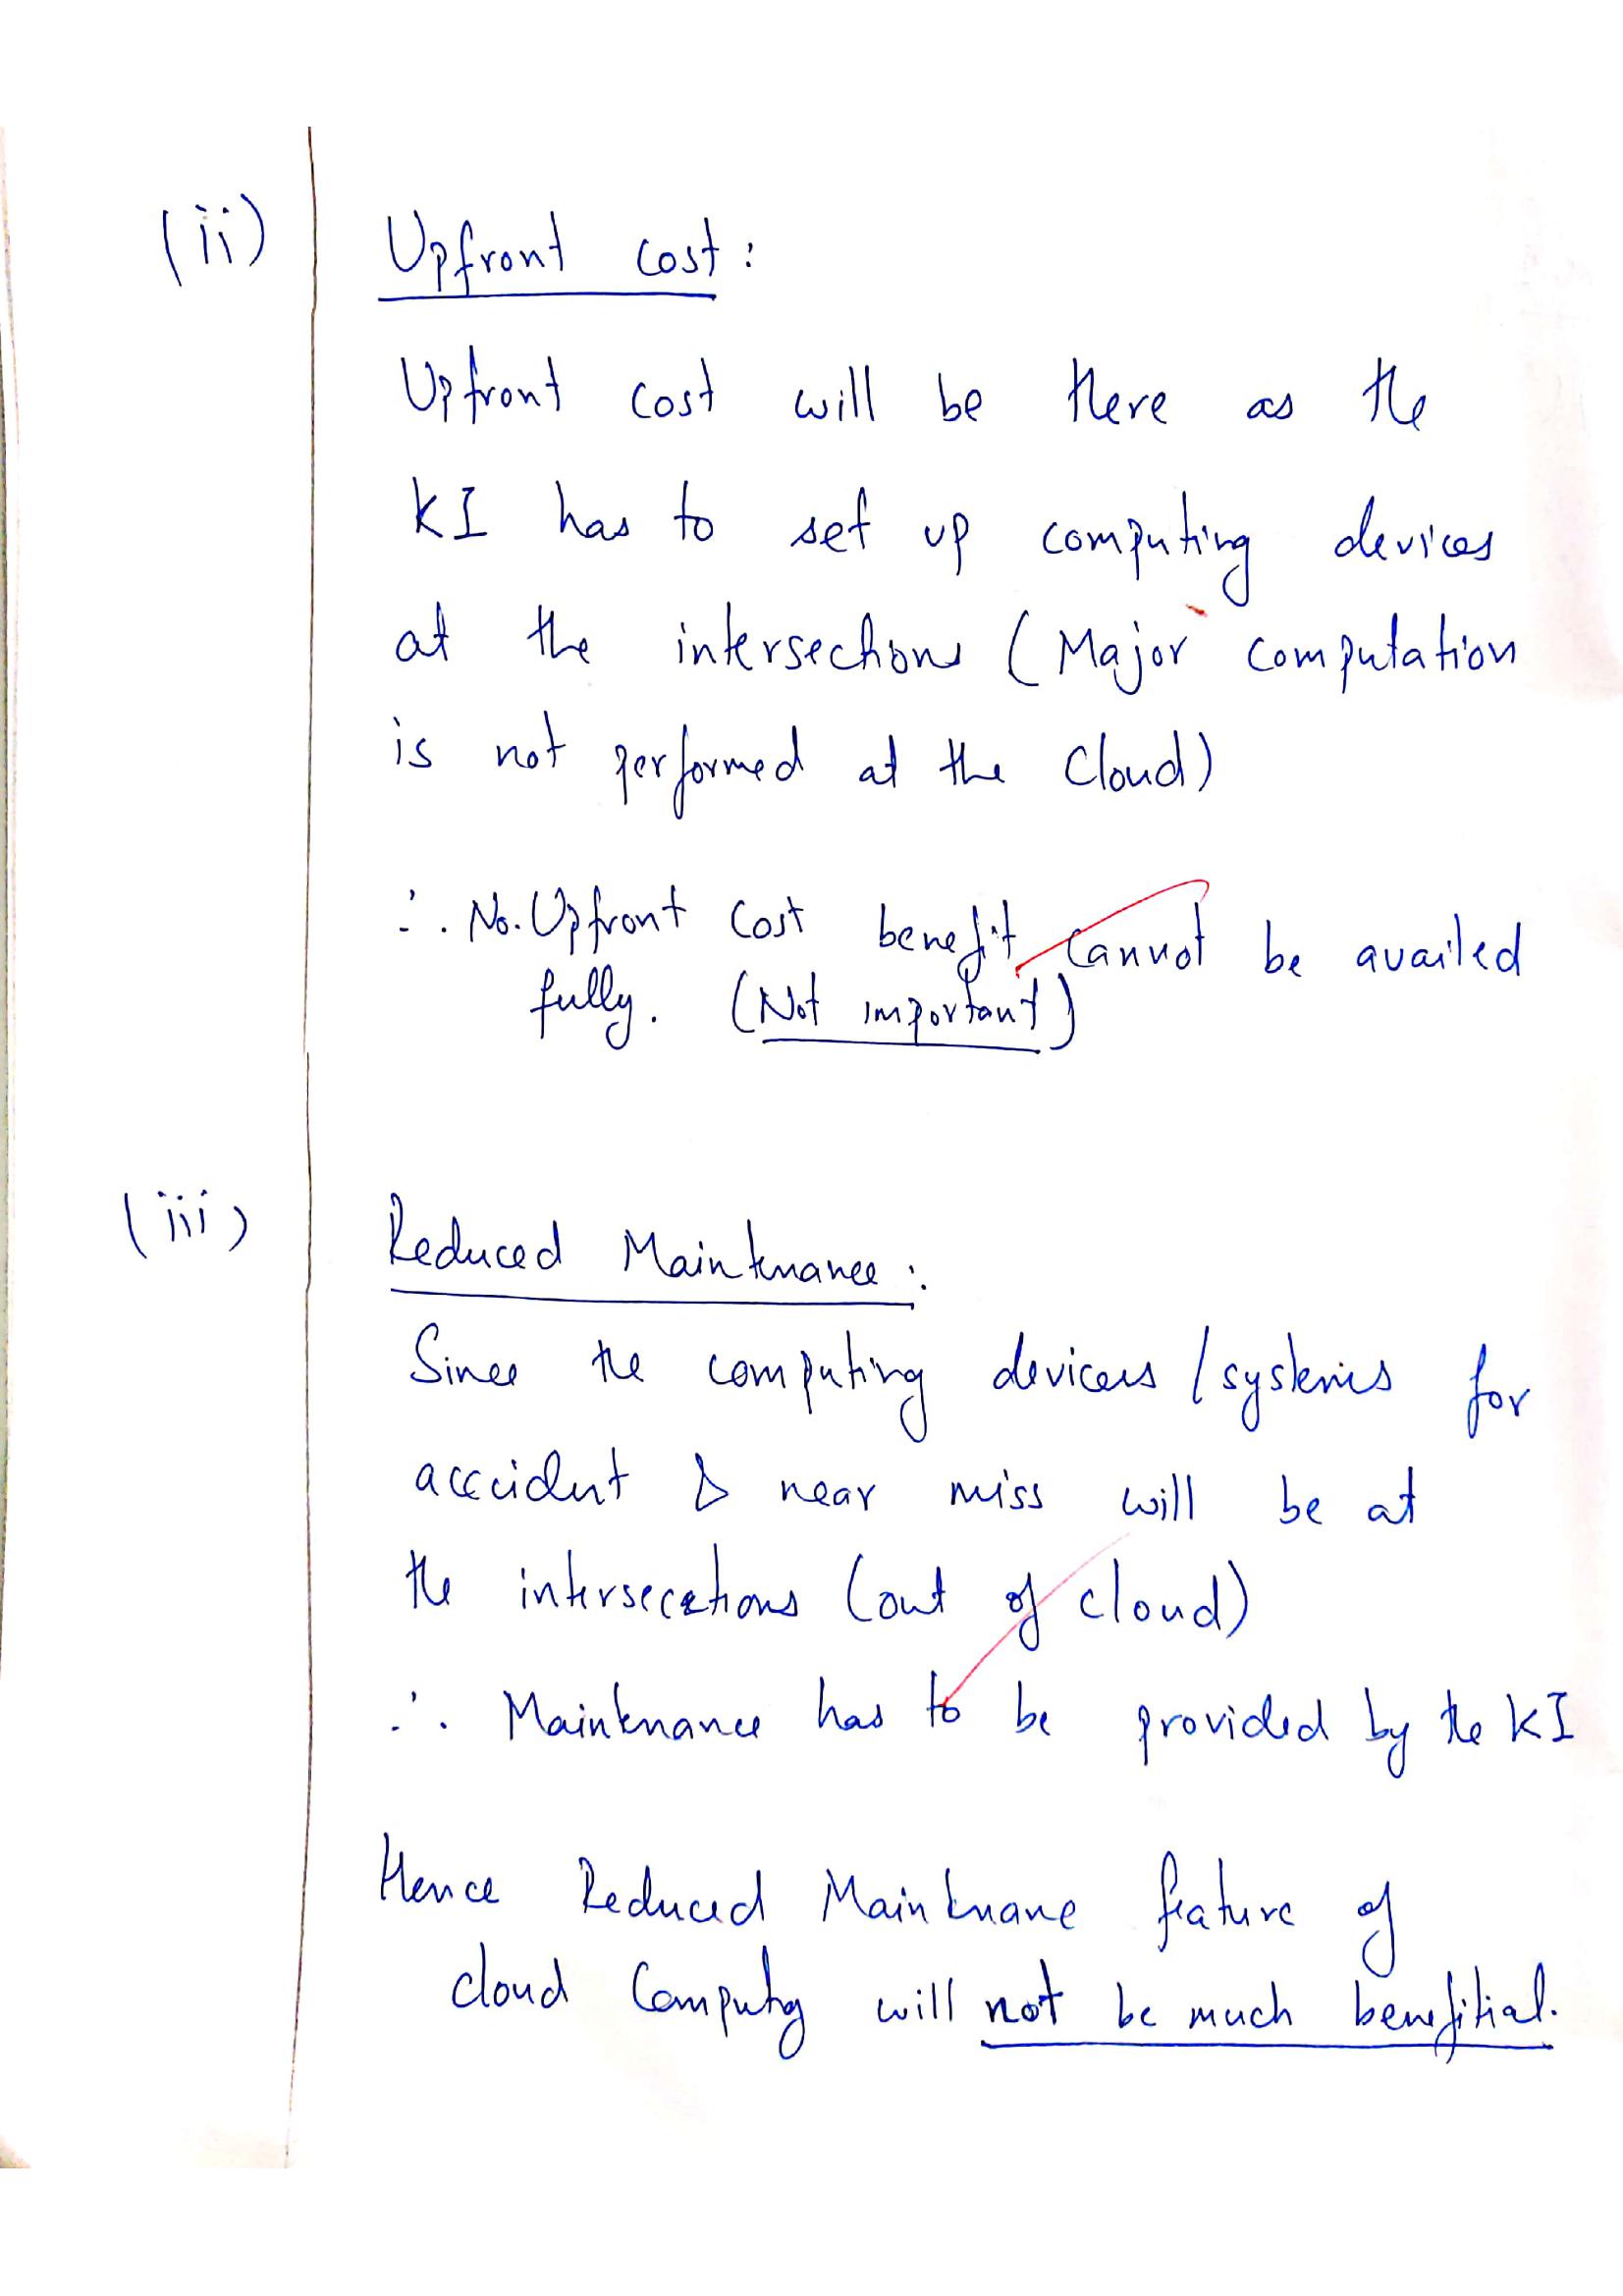 (ii) Upfront cost:
Upfront cost will be there as the
KI has to set up computing devices
at the intersections (Major computation
is not performed at the Cloud)
∴ No. Upfront Cost benefit cannot be availed
fully. (Not important)
(iii) Reduced Maintenance:
Since the computing devices / systems for
acccident & near miss will be at
the intersecations (out of cloud)
∴ Maintenance has to be provided by the KI
Hence Reduced Maintenane feature of
cloud Computing will not be much benefitial.